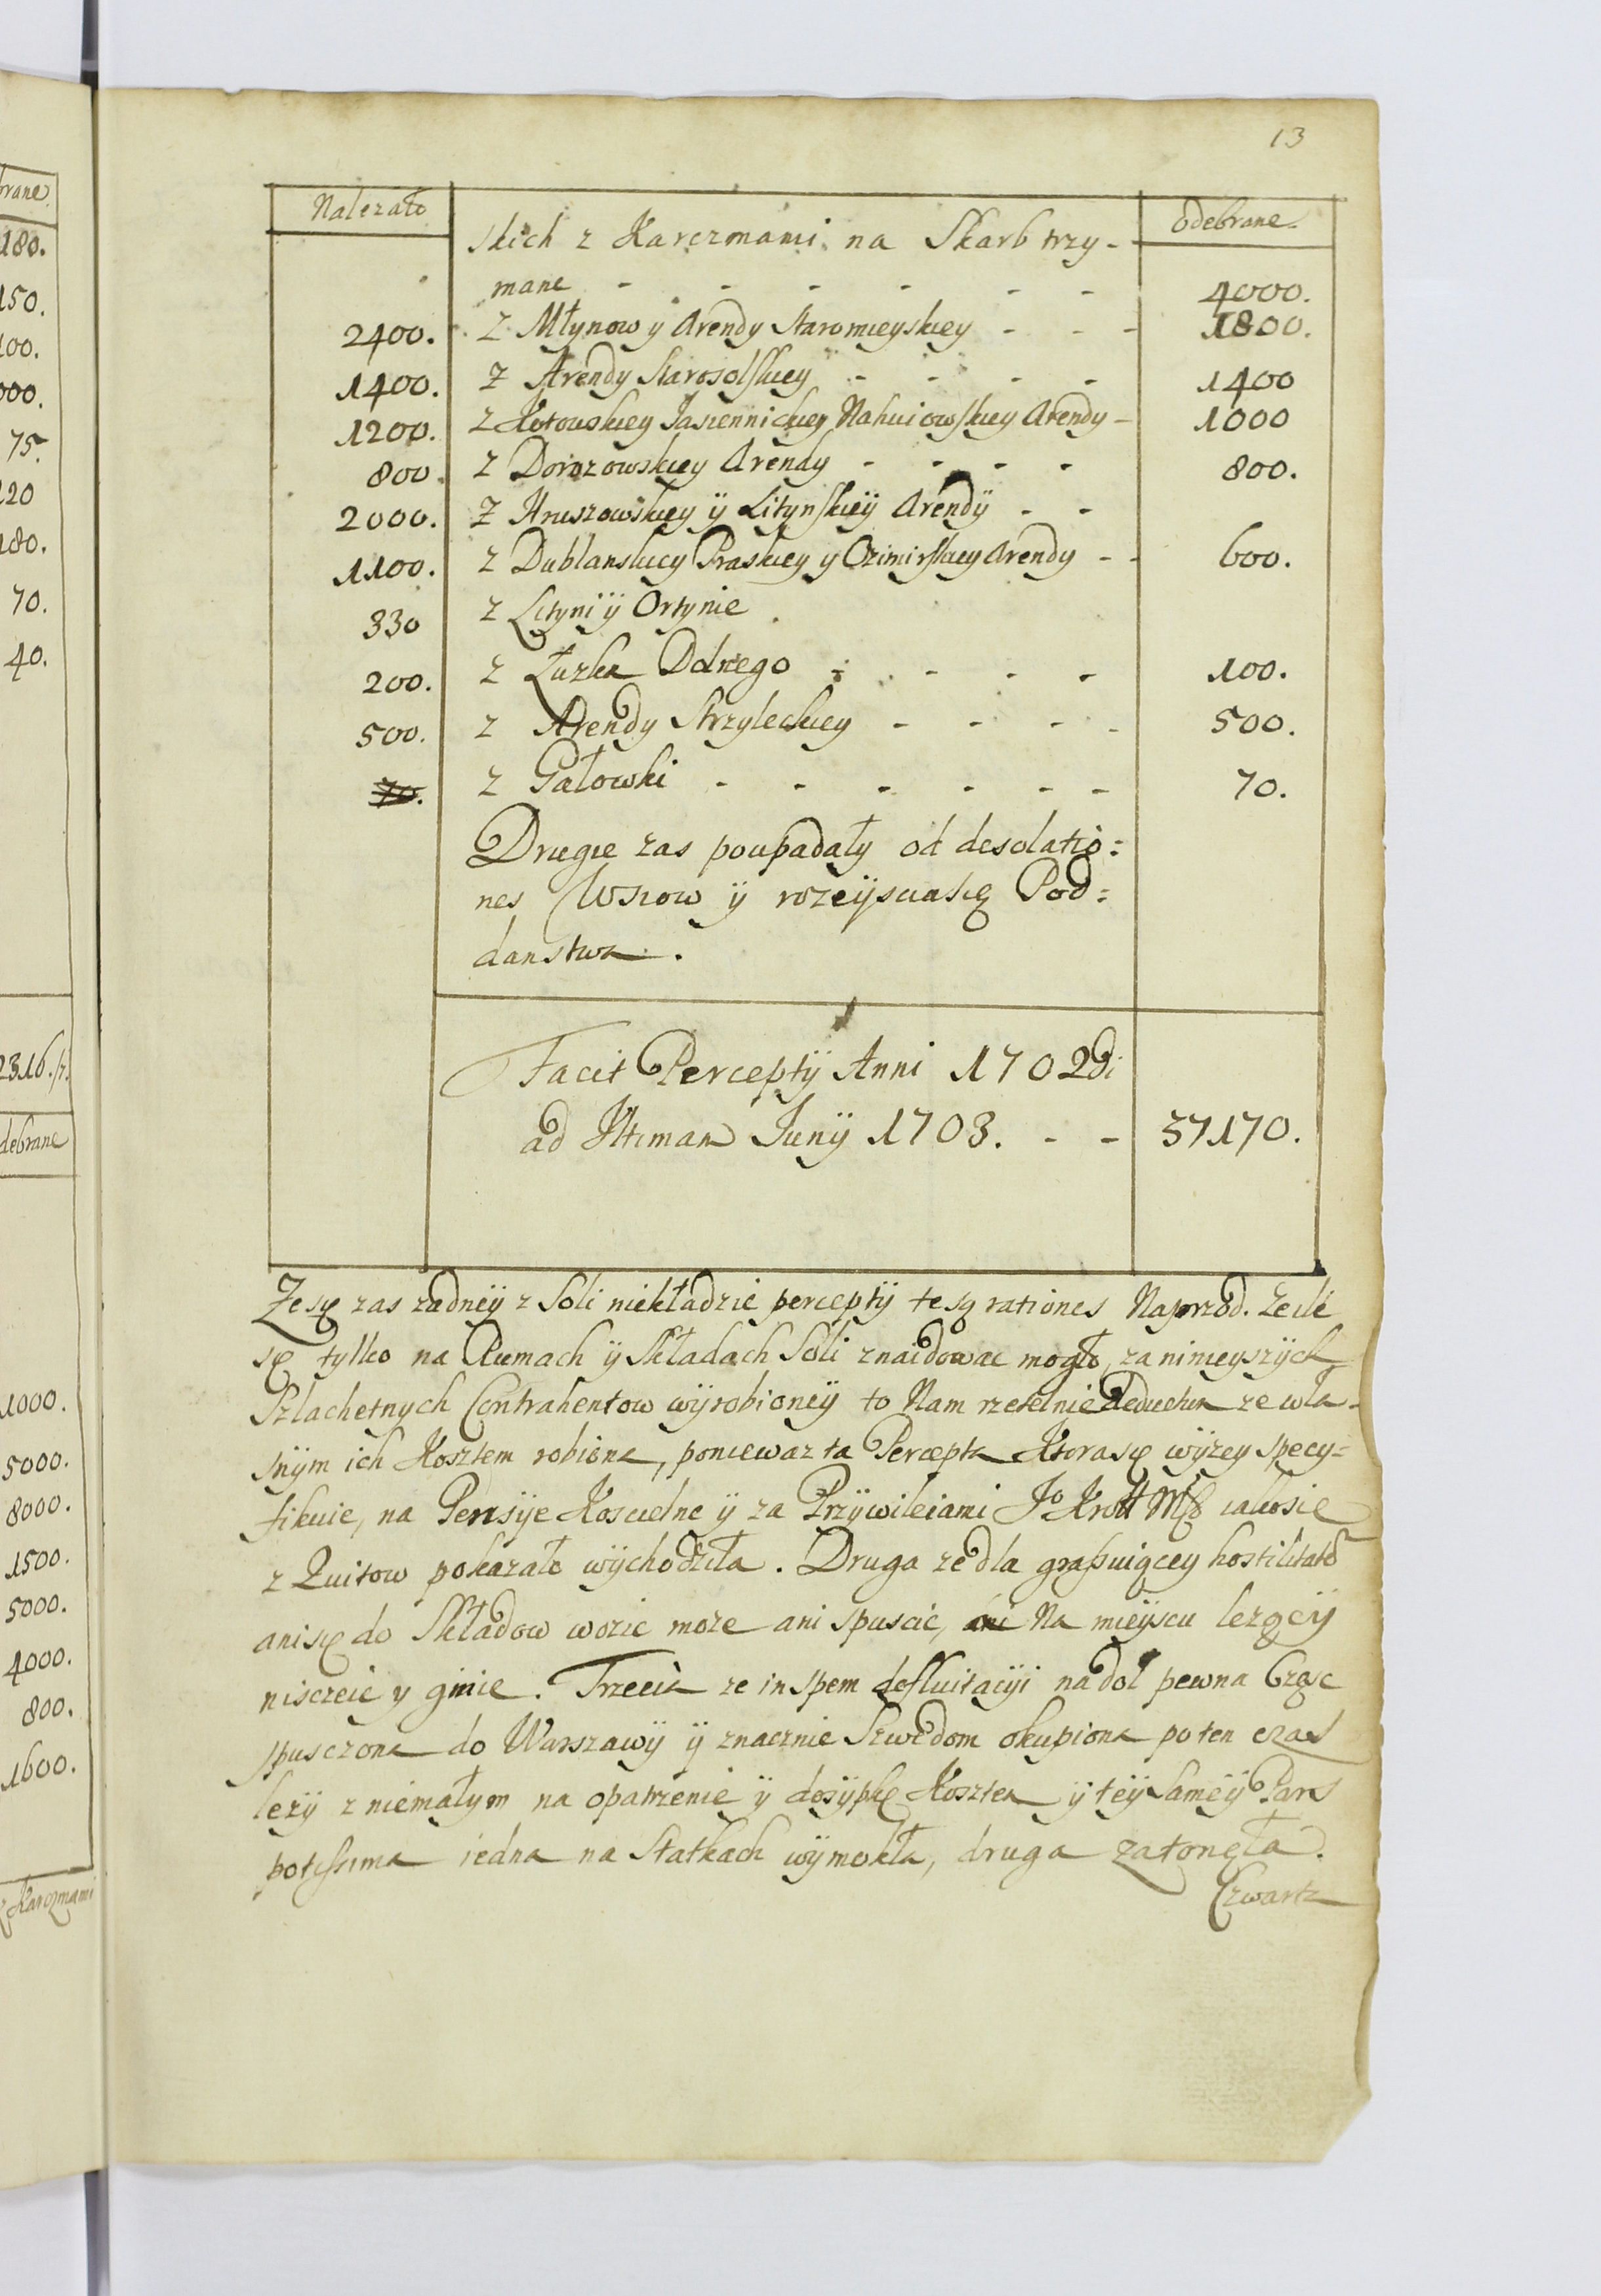 13
Nalezało Odebrane
skich z Karczmami na Skarb trzy-
mane - - - - - - 4000.
2400. Z Młynow y Arendy Staromieyskiey - - - 1800.
1400. Z Arendy Starosolskiey - - - - 1400
1200. Z Kotowskiey Jasiennickiey Nahuiowskiey Arendy - 1000
800. Z Dorozowskiey Arendy - - - - 800.
2000. Z Hruszowskiey ÿ Litynskiÿ Arendÿ - -
1100. Z Dublanskiey Praskiey y Ozimirskiey Arendy - - 600.
330 Z Lityni ÿ Ortynie
200. Z Łuzka Dolnego - - - - 100.
500. Z Arendy Strzyleckiey - - - - 500.
70. Z Gałowki - - - - - - 70.
Drugie zas poupadały od desolatio=
nes Wsiow ÿ rozeÿscia się Pod=
danstwa.
Facit Perceptÿ Anni 1702di
ad Ultiman Junÿ 1703. - - 37170.
Ze się zas zadneÿ z Soli niekładzie perceptÿ te są rationes Naprzod. Ze ile
się tylko na Rumach ÿ Składach Soli znaidowac mogło, za ninieyszÿch
Szlachetnych Contrahentow wÿrobioneÿ to Nam rzetelnie deducta ze wła-
snÿm ich Kosztem robiona, poniewaz ta Percepta Ktora się wÿzey specy=
fikuie, na Pensÿe Koscielne ÿ za Przÿwileiami Jo Kro M iako sie
z Quitow pokazało wÿchodziła. Druga ze dla grassuiącey hostilitatis
ani się do Składow wozic moze ani spuscic, Na mieÿscu lezącÿ
nisczeie y ginie. Trzecia ze in spem defluitacÿi na doł pewna Częsc
spusczona do Warszawÿ ÿ znacznie Szwedom okupiona po ten czas
lezÿ z niemałym na opatrzenie ÿ dosÿpkę Kosztem ÿ teÿ Sameÿ Pars
potissima iedna na Statkach wÿmokła, druga zatonęła.
Czwarta
brane
180.
150.
100.
000.
75.
120
180.
70.
40.
2316.
debrane
1000.
5000.
8000.
1500.
5000.
4000.
800.
1600.
z Karczmami